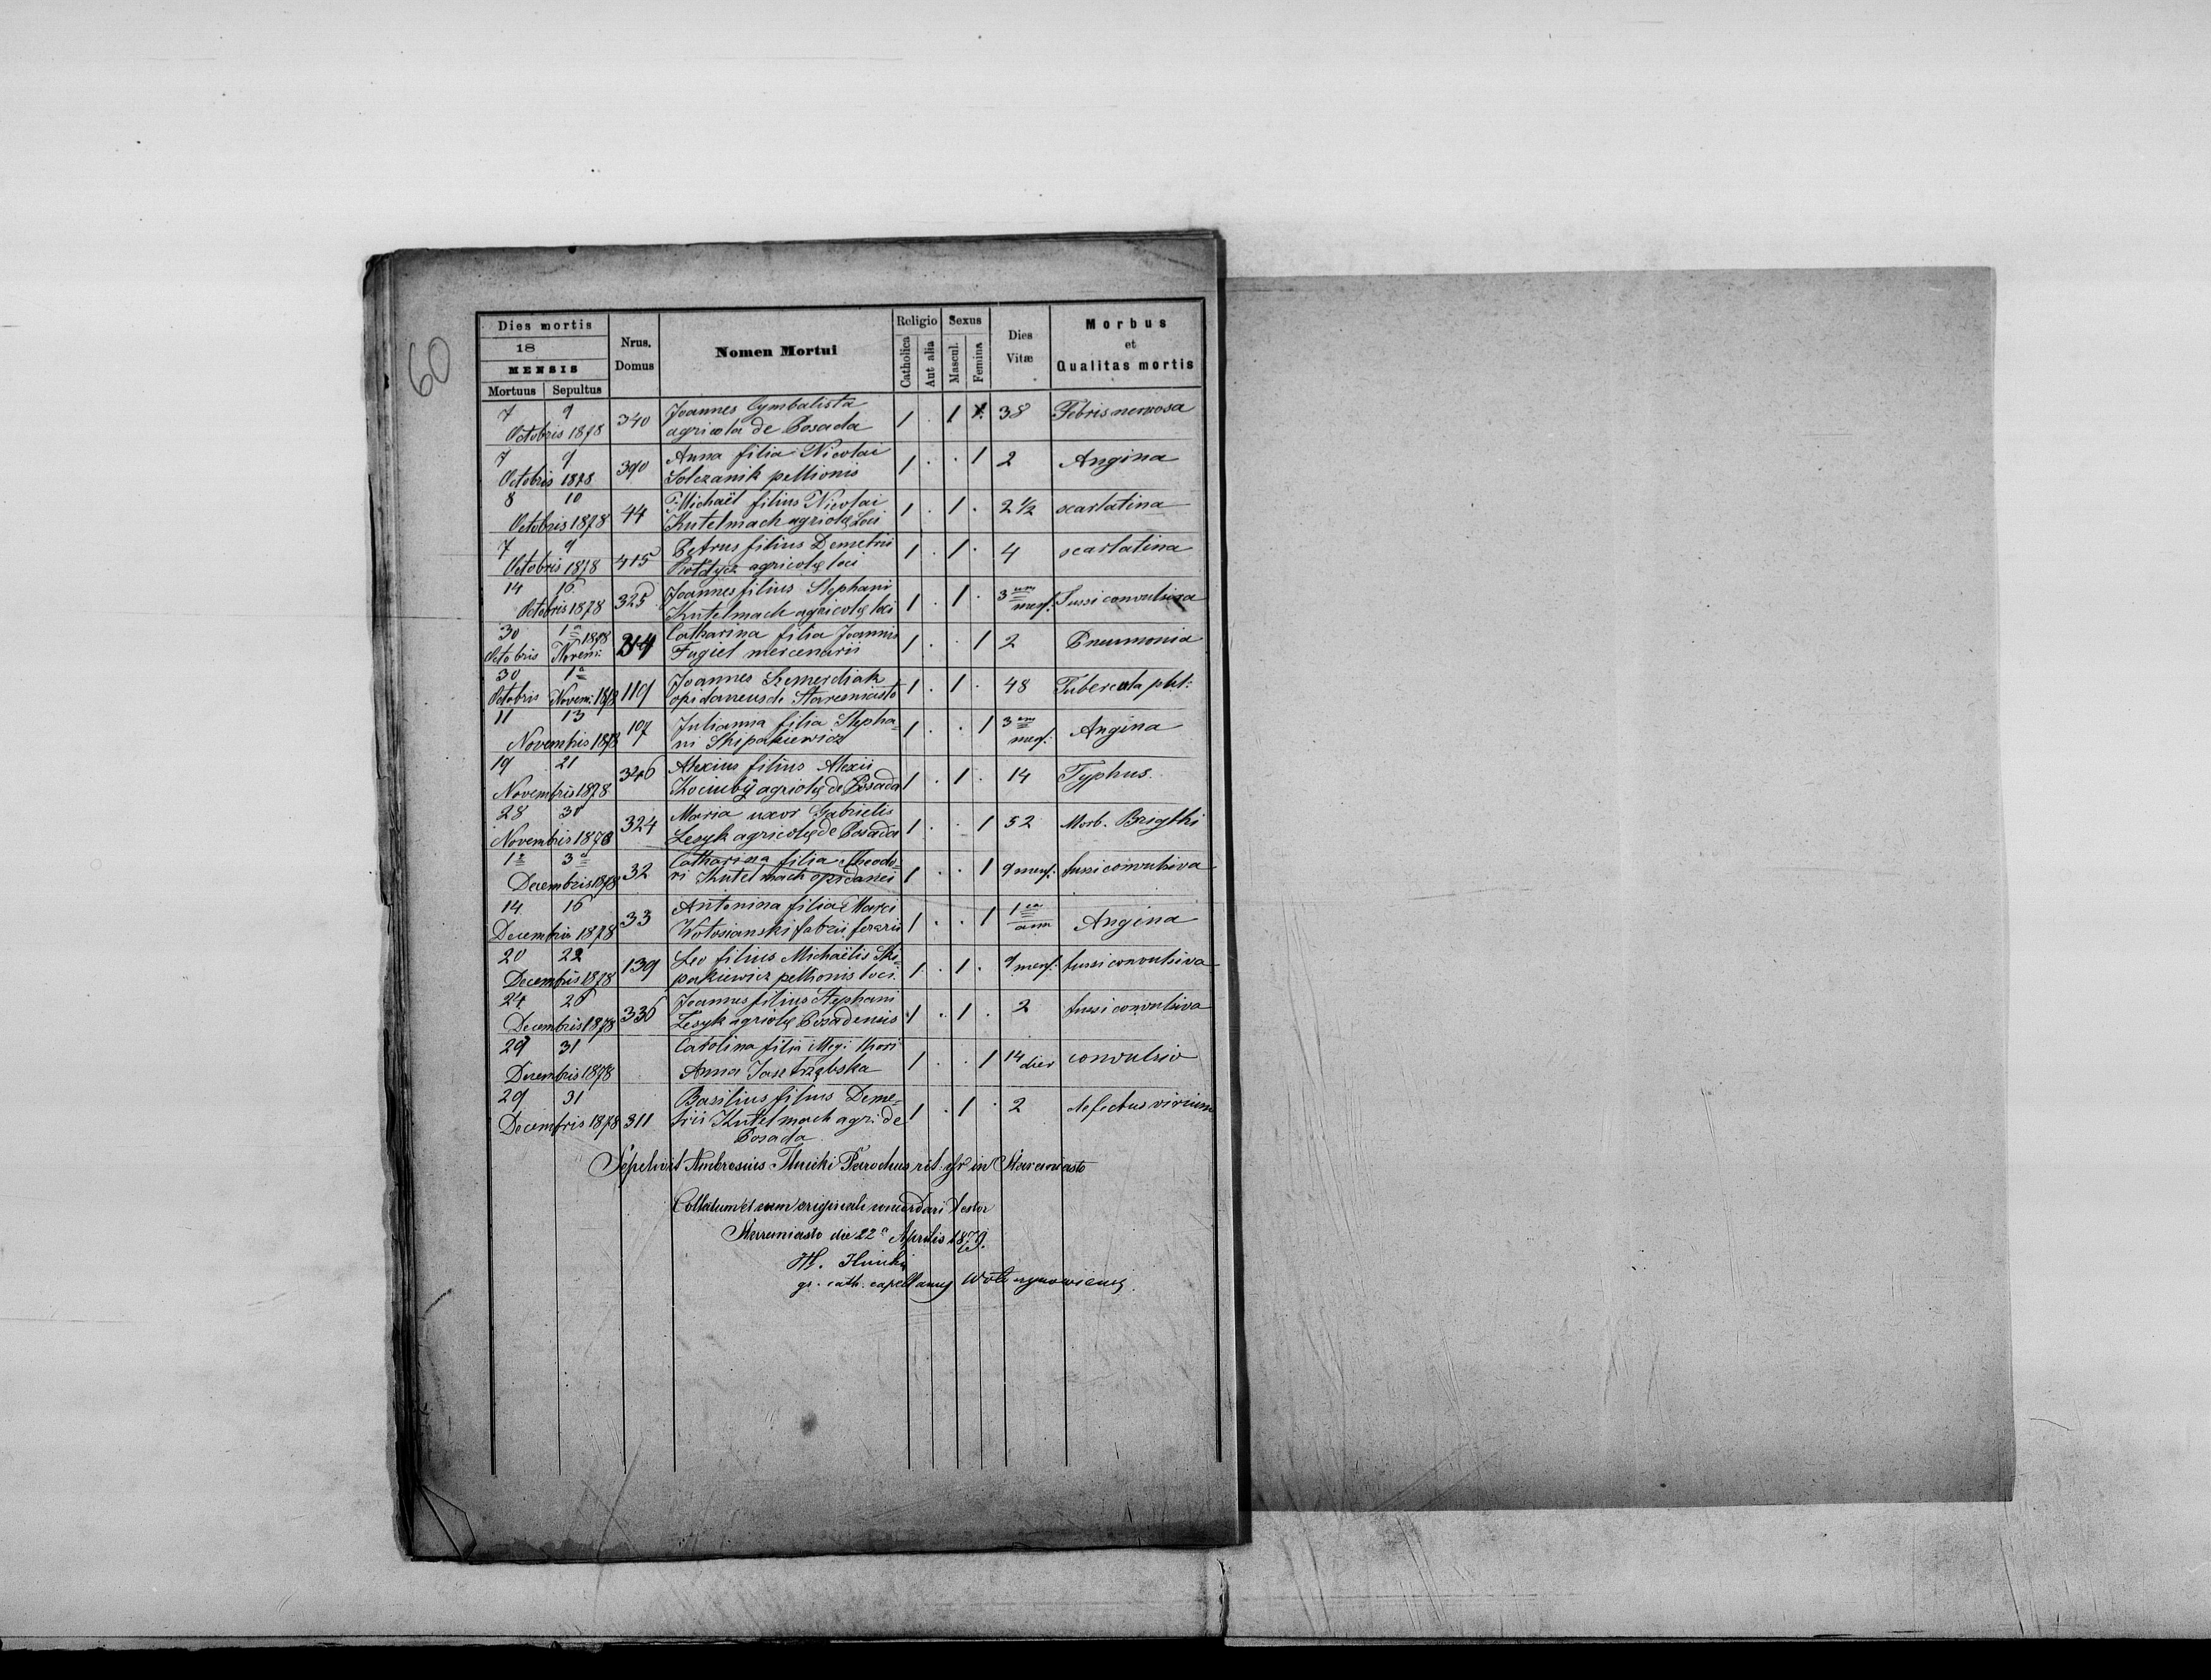 60
Dies mortis
18
MENSIS
Mortuus Sepultus
Nrus. Domus
Nomen Mortui
Religio
Catholica
Aut alia
Sexus
Mascul.
Femina
Dies Vitæ
Morbus
et
Qualitas mortis
7 9 340 Joannes Cymbalista 1 . 1 38 Febris nervosa
Octobris 1878 agricola de Posada
7 9 390 Anna filia Nicolai 1 . . 1 2 Angina
Octobris 1878 Solczanik pellionis
8 10 44 Michaël filius Nicolai 1 . 1 . 2 1/2 scarlatina
Octobris 1878 Kutelmach agricolę Loci
7 9 415 Petrus filius Demetrii 1 . 1 . 4 scarlatina
Octobris 1878 agricolę loci
14 16 325 Joannes filius Stephani 1 . 1 . 3 mens. Tussi convulsiva
Octobris 1878 Kutelmach agricolę loci
30 1 1878 Catharina filia Joannis 1 . . 1 2 Pneumonia
Octobris Novem: Fugiel mercenarii
30 1a 119 Joannes Szemerdiak 1 . 1 . 48 Tubercula pul:
Octobris Novem. 1878 opidaneus de Staremiasto
11 13 107 Julianna filia Stepha- 1 . . 1 3 mens. Angina
Novembris 1878 ni Skipakiewicz
19 21 346 Alexius filius Alexii 1 . 1 . 14 Typhus.
Novembris 1878 Kociubÿ agricolę de Posada
28 30 324 Maria uxor Gabrielis 1 . . 1 52 Morb. Brigthi
Novembris 1878 Lesyk agricolę de Posada
1a 3a 32 Catharina filia Theodo- 1 . . 1 9 mens. tussi convulsiva
Decembris 1878 ri Kutelmach opidanei
14 16 33 Antonina filia Marci 1 . . 1 1 ann Angina
Decembris 1878 Wołosianski fabrii ferarii
20 22 139 Leo filius Michaëlis Ski- 1 . 1 . 9 mens. tussi convulsiva
Decembris 1878 pakiewicz pellionis loci.
24 26 336 Joannes filius Stephani 1 . 1 . 2 tussi convulsiva
Decembris 1878 Lesyk agricolę Posadensis
29 31 Carolina filia illegi. thori 1 . . 1 14 dier convulsio
Decembris 1878 Anna Jastrzębska
29 31 Basilius filius Deme- 1 . 1 . 2 defectus virium
Decembris 1878 311 trii Kutelmach agri: de
Posada
Sepelivit Ambrosius Ilnicki Parochus rit. gr in Staremiasto
Collatum et cum originali concordari testor
Staremiasto die 22a Aprilis 1879.
Ilnicki
gr. cath. capellanus